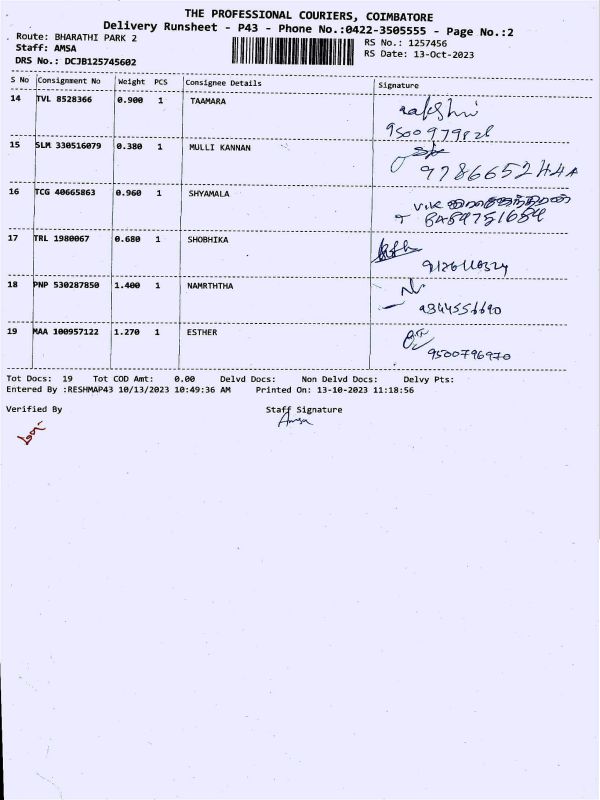 THE PROFESSIONAL COURIERS, COIMBATORE
Delivery Runsheet - P43 - Phone No.:0422-3505555 - Page No.:2
Route: BHARATHI PARK 2
RS No.: 1257456
Staff: AMSA
RS Date: 13-Oct-2023
DRS No.: DCJB125745602
S No Consignment No Weight PCS Consignee Details Signature
14 TVL 8528366 0.900 1 TAAMARA
15 SLM 330516079 0.380 1 MULLI KANNAN
16 TCG 40665863 0.960 1 SHYAMALA
17 TRL 1980067 0.680 1 SHOBHIKA
18 PNP 530287850 1.400 1 NAMRTHTHA
9344556690
19 MAA 100957122 1.270 1 ESTHER
9500796970
Tot Docs: 19 Tot COD Amt: 0.00 Delvd Docs: Non Delvd Docs: Delvy Pts:
Entered By :RESHMAP43 10/13/2023 10:49:36 AM Printed On: 13-10-2023 11:18:56
Verified By Staff Signature
Amsa